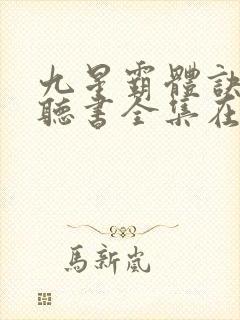 九星霸體訣
聽書全集在
馬新嵐